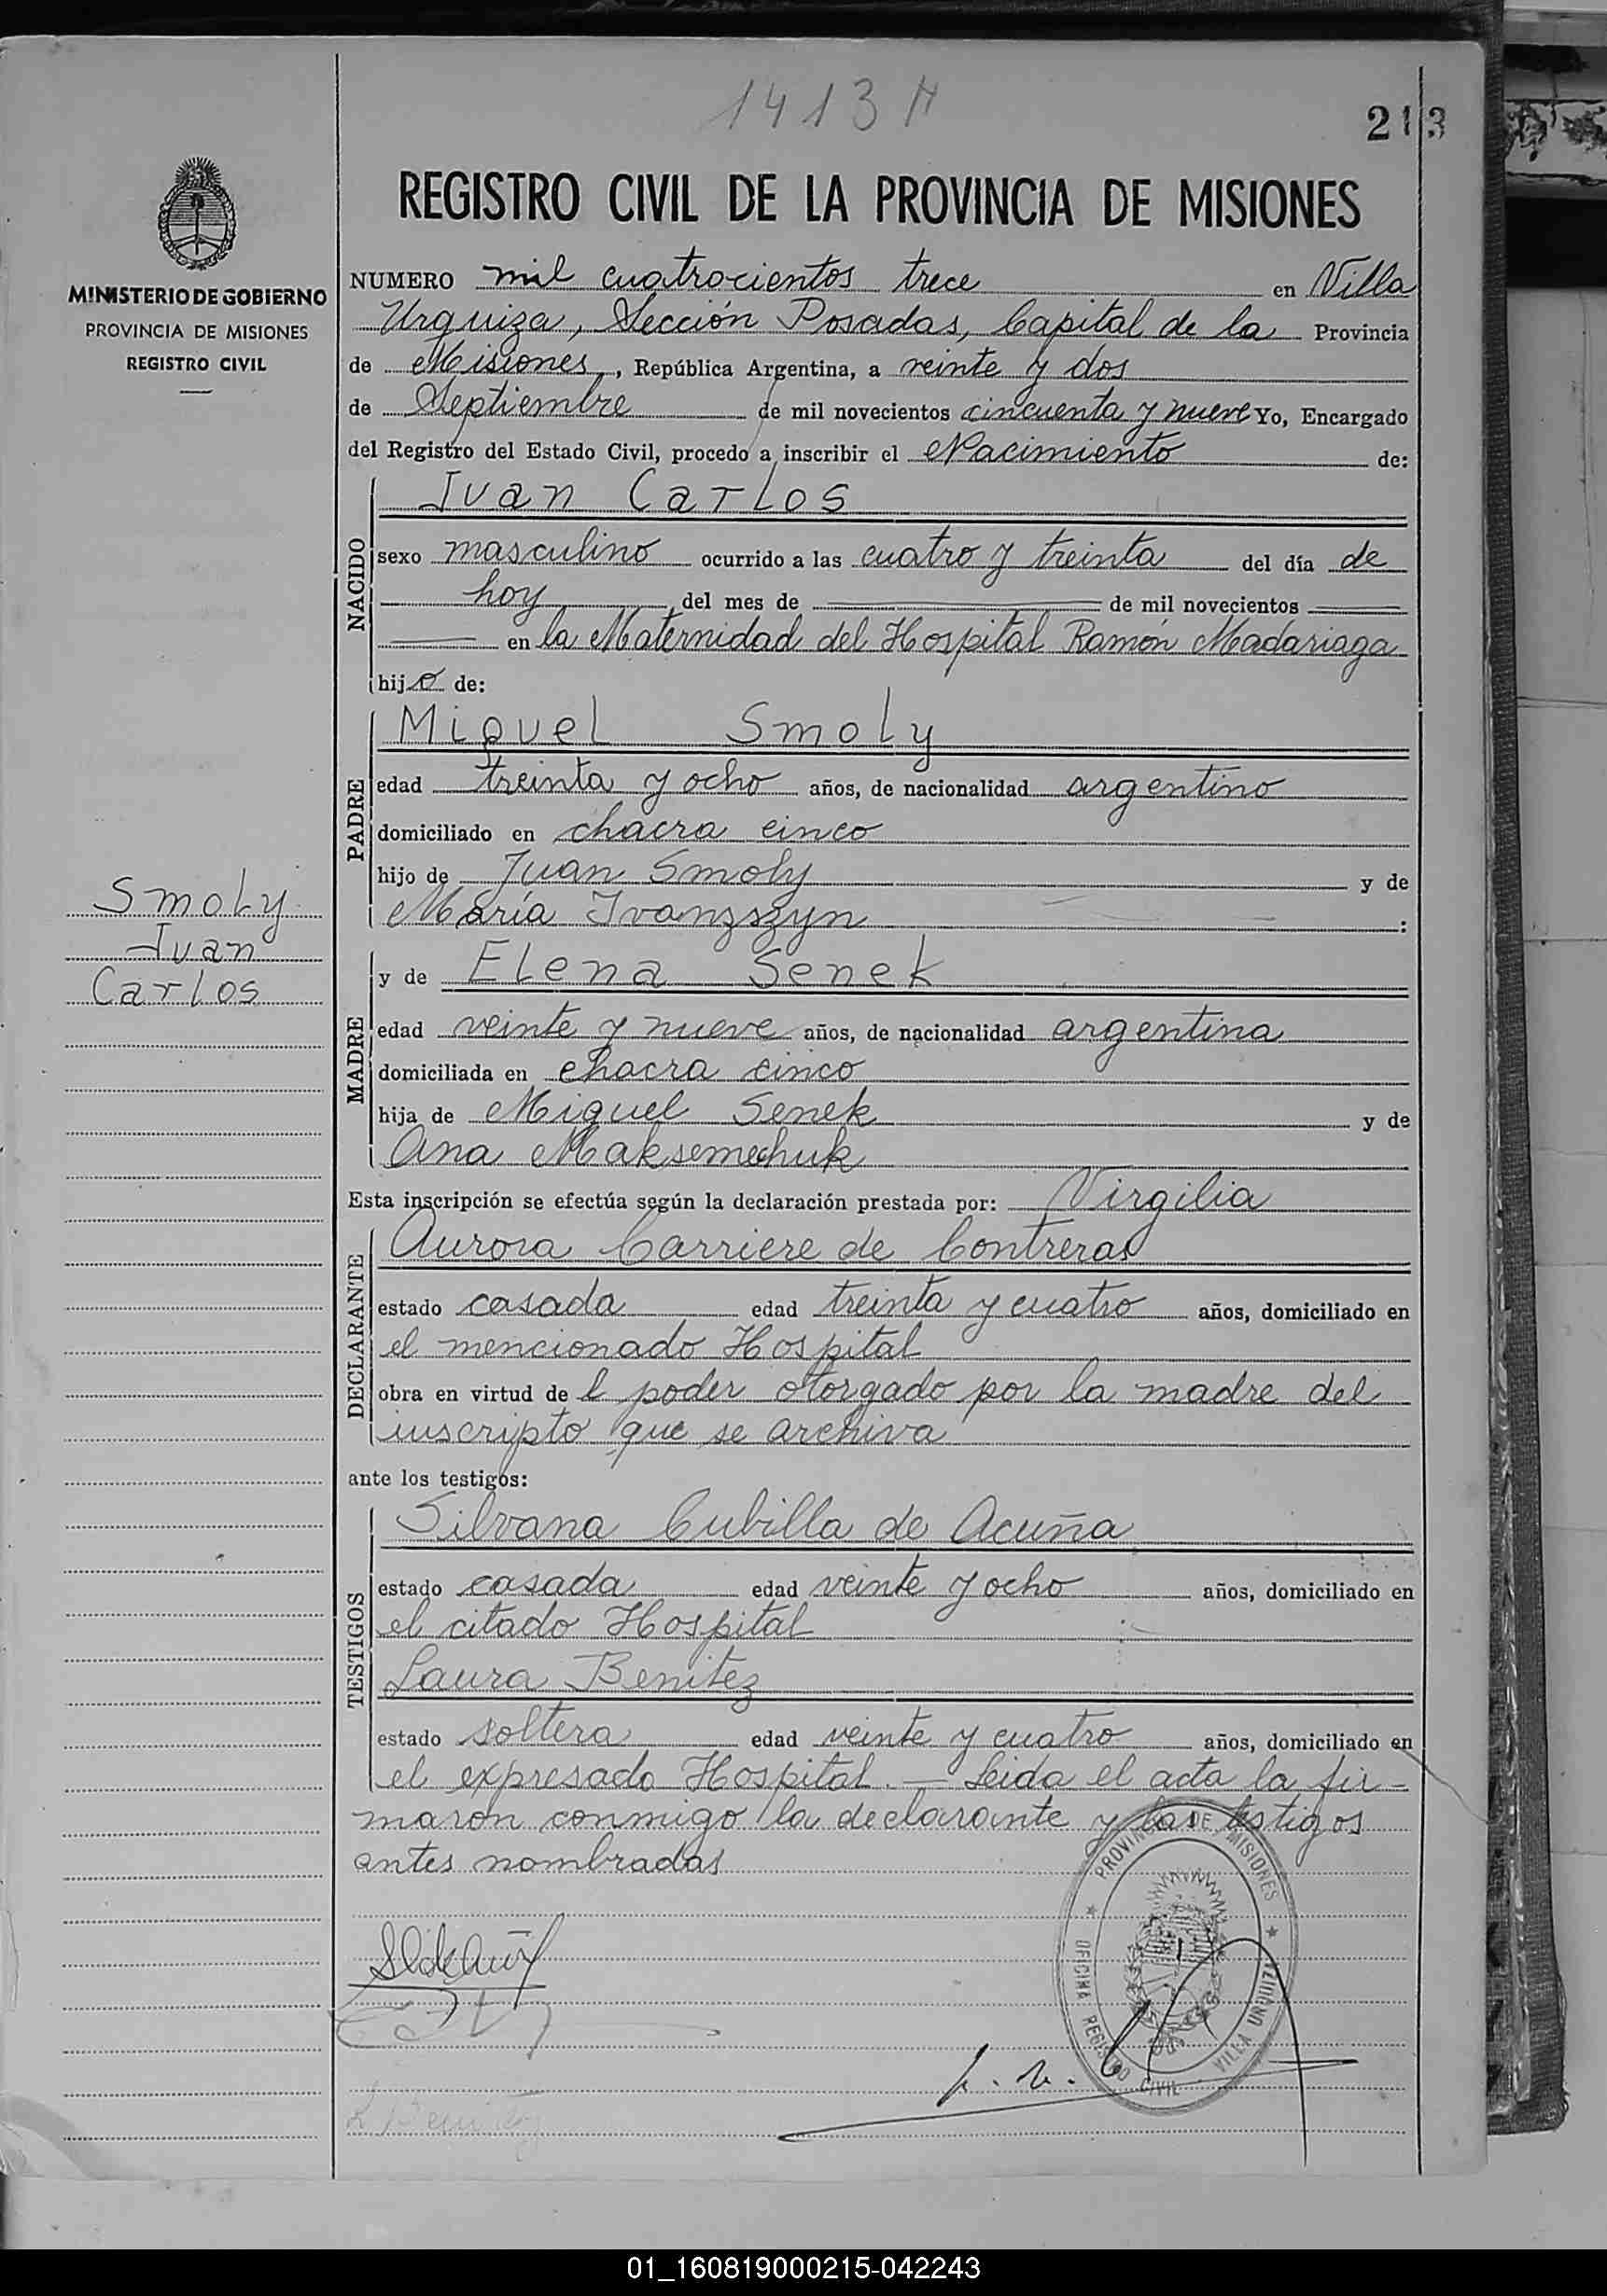 1413 N
213
REGISTRO CIVIL DE LA PROVINCIA DE MISIONES
MINISTERIO DE GOBIERNO
PROVINCIA DE MISIONES
REGISTRO CIVIL
NUMERO mil cuatrocientos trece en Villa
Urquiza, Sección Posadas, Capital de la Provincia
de Misiones, República Argentina, a veinte y dos
de Septiembre de mil novecientos cincuenta y nueve Yo, Encargado
del Registro del Estado Civil, procedo a inscribir el Nacimiento de:
NACIDO
Ivan Carlos
sexo masculino ocurrido a las cuatro y treinta del día de
hoy del mes de de mil novecientos
en la Maternidad del Hospital Ramón Madariaga
hijo de:
PADRE
Miguel Smoly
edad treinta y ocho años, de nacionalidad argentino
domiciliado en chacra cinco
hijo de Juan Smoly y de
María Ivanzszyn :
Smoly
Ivan
Carlos
MADRE
y de Elena Senek
edad veinte y nueve años, de nacionalidad argentina
domiciliada en chacra cinco
hija de Miguel Senek y de
Ana Maksemechuk
Esta inscripción se efectúa según la declaración prestada por: Virgilia
DECLARANTE
Aurora Carriere de Contreras
estado casada edad treinta y cuatro años, domiciliado en
el mencionado Hospital
obra en virtud de l poder otorgado por la madre del
inscripto que se archiva
ante los testigos:
TESTIGOS
Silvana Cubilla de Acuña
estado casada edad veinte y ocho años, domiciliado en
el citado Hospital
Laura Benitez
estado soltera edad veinte y cuatro años, domiciliado en
el expresado Hospital. — Leida el acta la fir-
maron conmigo la declarante y las testigos
antes nombradas
PROVINCIA DE MISIONES
OFICINA REGISTRO CIVIL VILLA URQUIZA
L Benitez
01_160819000215-042243